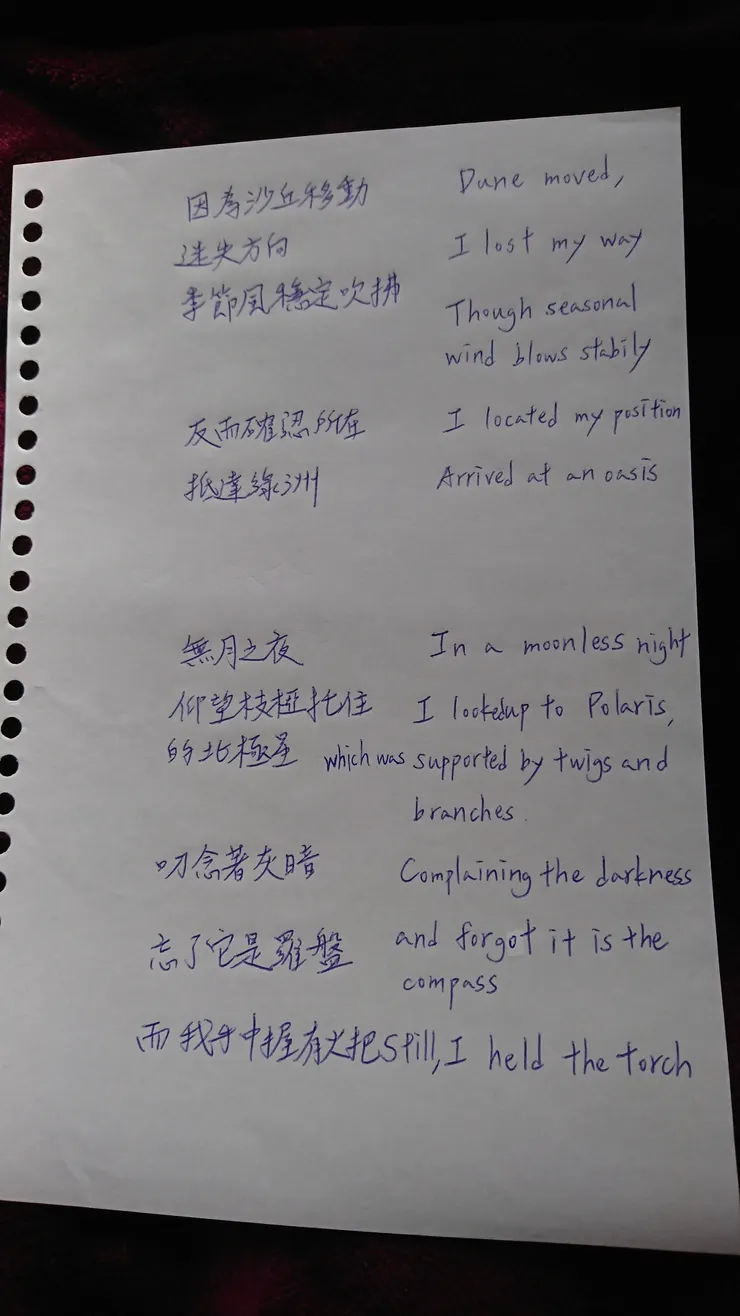 因為沙丘移動 Dune moved,
迷失方向 I lost my way
季節風穩定吹拂 Though seasonal
wind blows stabily
反而確認所在 I located my position
抵達綠洲 Arrived at an oasis
無月之夜 In a moonless night
仰望枝椏托住 I lookedup to Polaris,
的北極星 which was supported by twigs and
branches.
叨念著灰暗 Complaining the darkness
忘了它是羅盤 and forgot it is the
compass
而我手中握有火把 Still, I held the torch